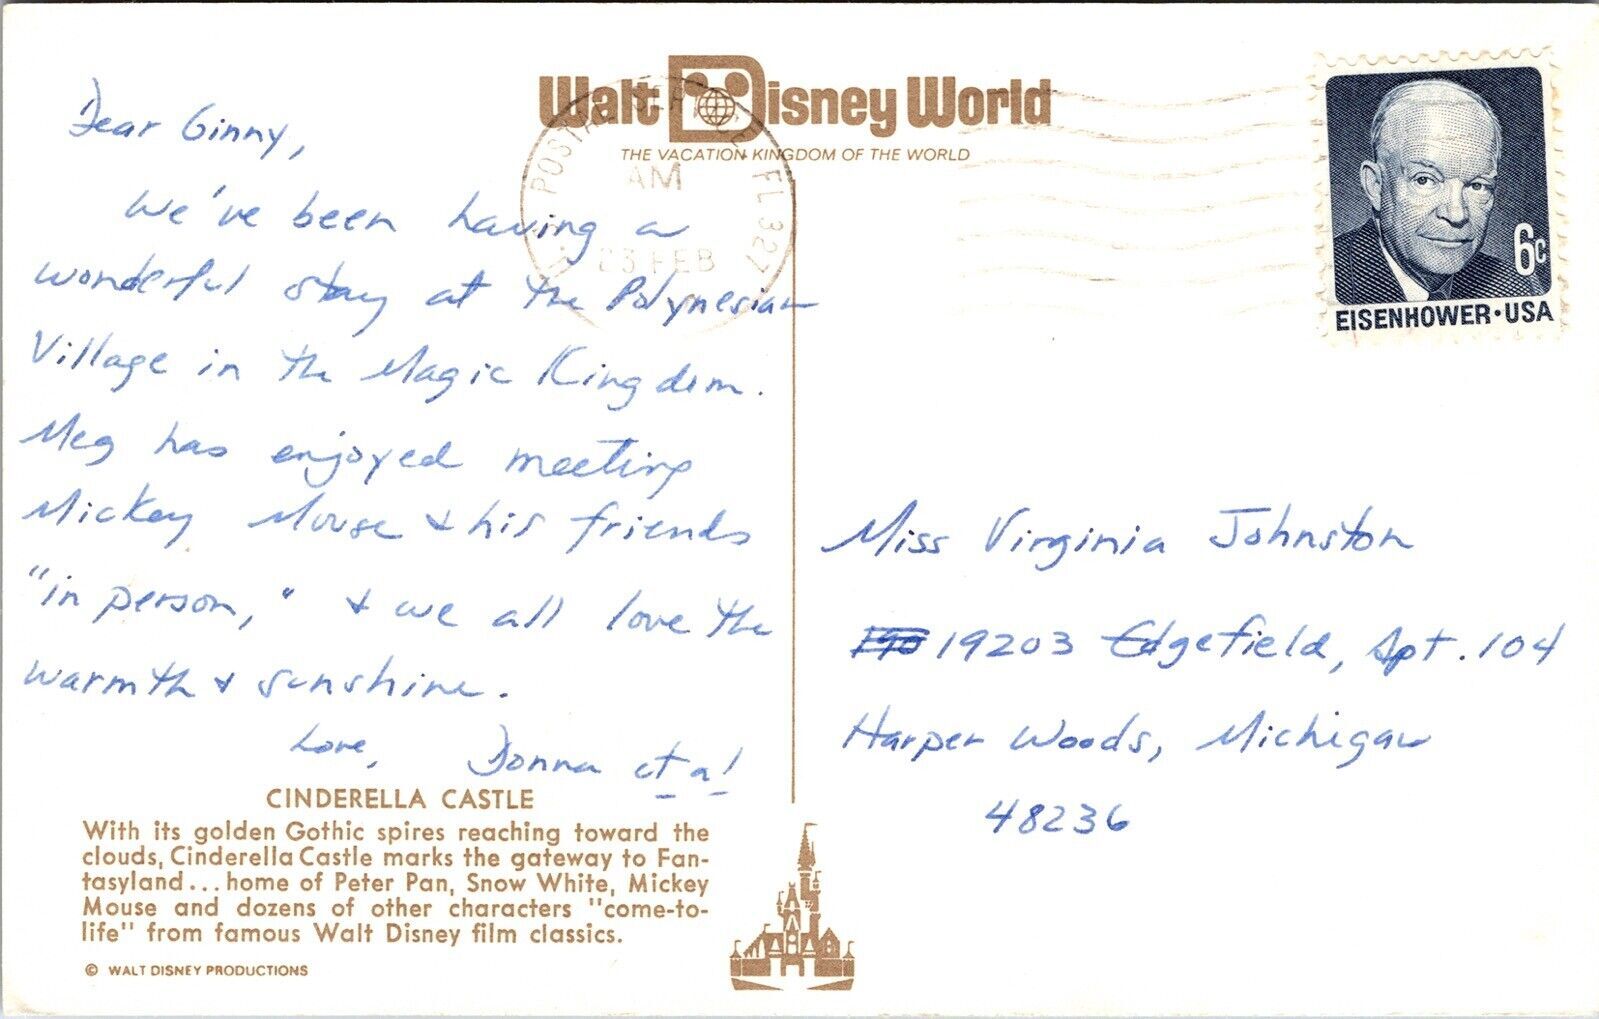 Walt Disney World
THE VACATION KINGDOM OF THE WORLD
POSTAL FL 327
AM
23 FEB
6c
EISENHOWER·USA
Dear Ginny,
We've been having a
wonderful stay at the Polynesian
Village in the Magic Kingdom.
Meg has enjoyed meeting
Mickey Mouse & his friends
"in person," & we all love the
warmth & sunshine.
Love, Donna et al
Miss Virginia Johnston
19203 Edgefield, Apt. 104
Harper Woods, Michigan
48236
CINDERELLA CASTLE
With its golden Gothic spires reaching toward the
clouds, Cinderella Castle marks the gateway to Fan-
tasyland... home of Peter Pan, Snow White, Mickey
Mouse and dozens of other characters "come-to-
life" from famous Walt Disney film classics.
© WALT DISNEY PRODUCTIONS